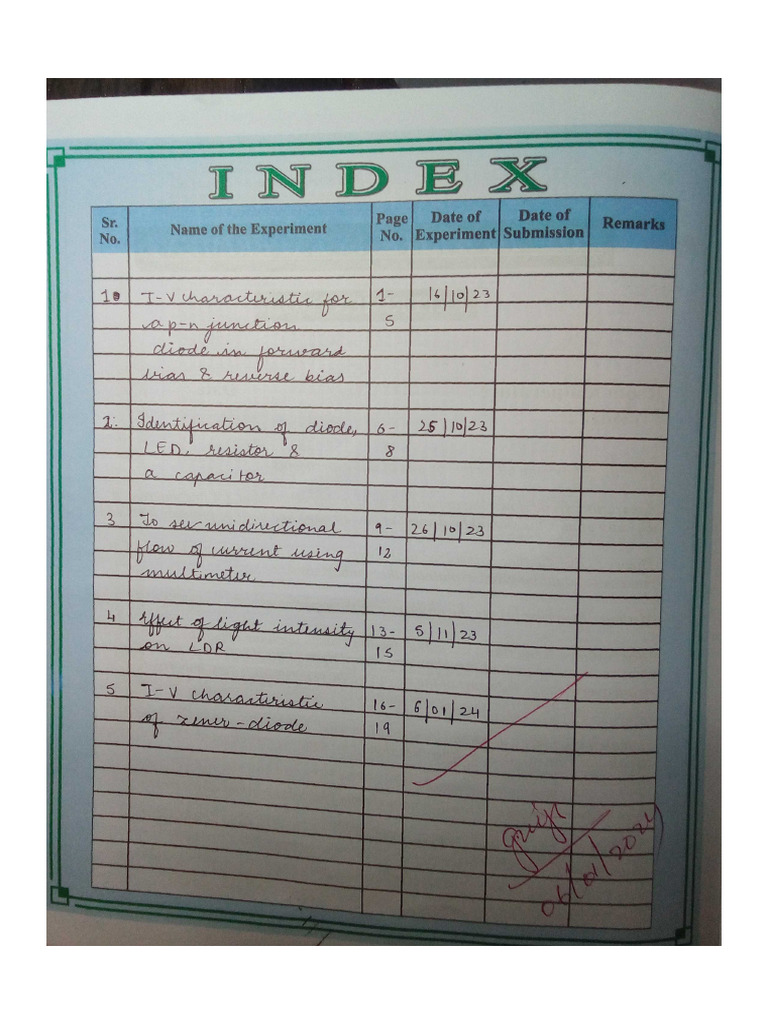 INDEX
Sr. No. Name of the Experiment Page No. Date of Experiment Date of Submission Remarks
1. I-V characteristic for 1- 16/10/23
a p-n junction 5
diode in forward
bias & reverse bias
2. Identification of diode, 6- 25/10/23
LED, resistor & 8
a capacitor
3 To see unidirectional 9- 26/10/23
flow of current using 12
multimeter
4 Effect of light intensity 13- 5/11/23
on LDR 15
5 I-V characteristic 16- 6/01/24
of zener-diode 19
06/01/2024